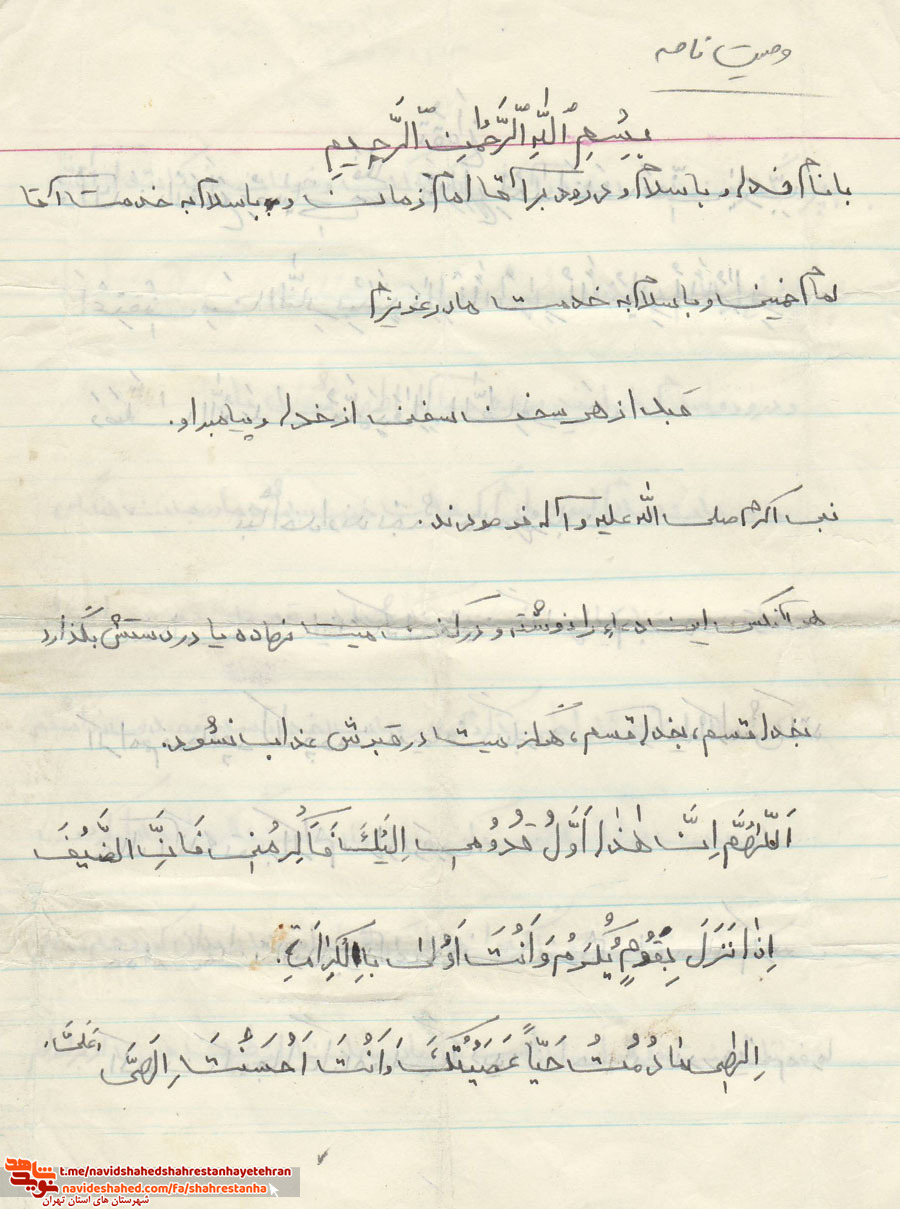 وصیت نامه
بِسْمِ اللَّهِ الرَّحْمٰنِ الرَّحِیمِ
بانام خدا و باسلام و درود بر آقا امام زمان و باسلام به خدمت آقا
امام خمینی و باسلام به خدمت مادر عزیزم
قبل از هر سخن سخنی از خدا و پیامبر او.
نبی اکرم صلی الله علیه و آله فرمودند.
هر آنکس این دعاء را نوشته و در کفن میت نهاده یا در دستش بگذارد
بخدا قسم، بخدا قسم، هرگز میت در قبرش عذاب نشود.
اَللّهُمَّ اِنَّ هٰذا اَوَّلُ قُدُومی اِلَیْکَ فَاَکْرِمْنی فَاِنَّ الضَّیْفَ
اِذا نَزَلَ بِقَوْمٍ یُکْرَمُ وَ اَنْتَ اَوْلیٰ بِالْکَرامَةِ.
اِلهی مادُمْتُ حَیّاً عَصَیْتُکَ وَ اَنْتَ اَحْسَنْتَ اِلَیَّ
t.me/navidshahedshahrestanhayetehran
navideshahed.com/fa/shahrestanha
نوید شاهد
شهرستان های استان تهران